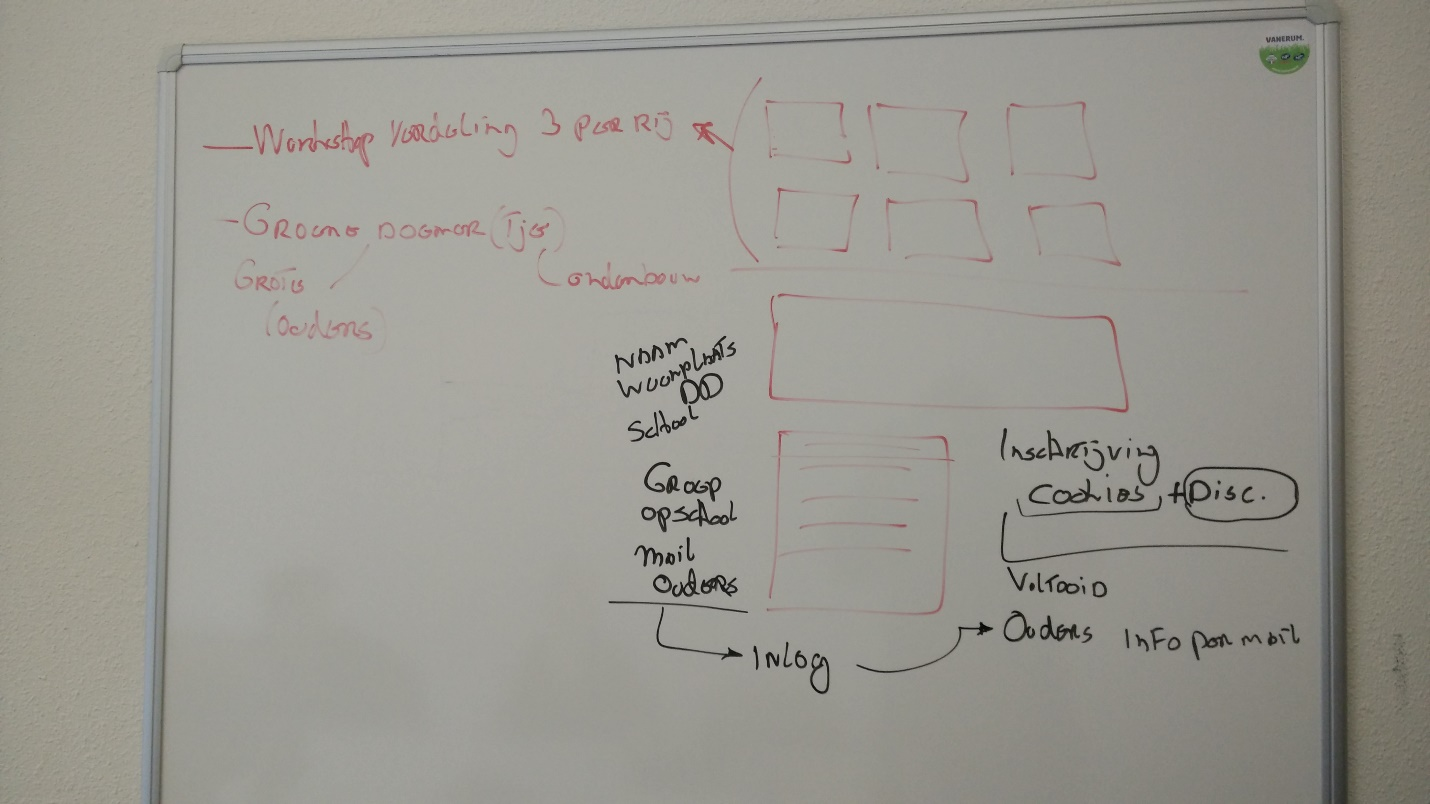 VANERUM.
— Workshop Verdeling 3 per Rij
- Groene Dogmor (Tjes)
Grote
onderbouw
(Ouders)
NAAM
Woonplaats
School
Groep
op school
Mail
Ouders
INLOG
Inschrijving
Cookies + Disc.
Voltooid
Ouders Info per mail